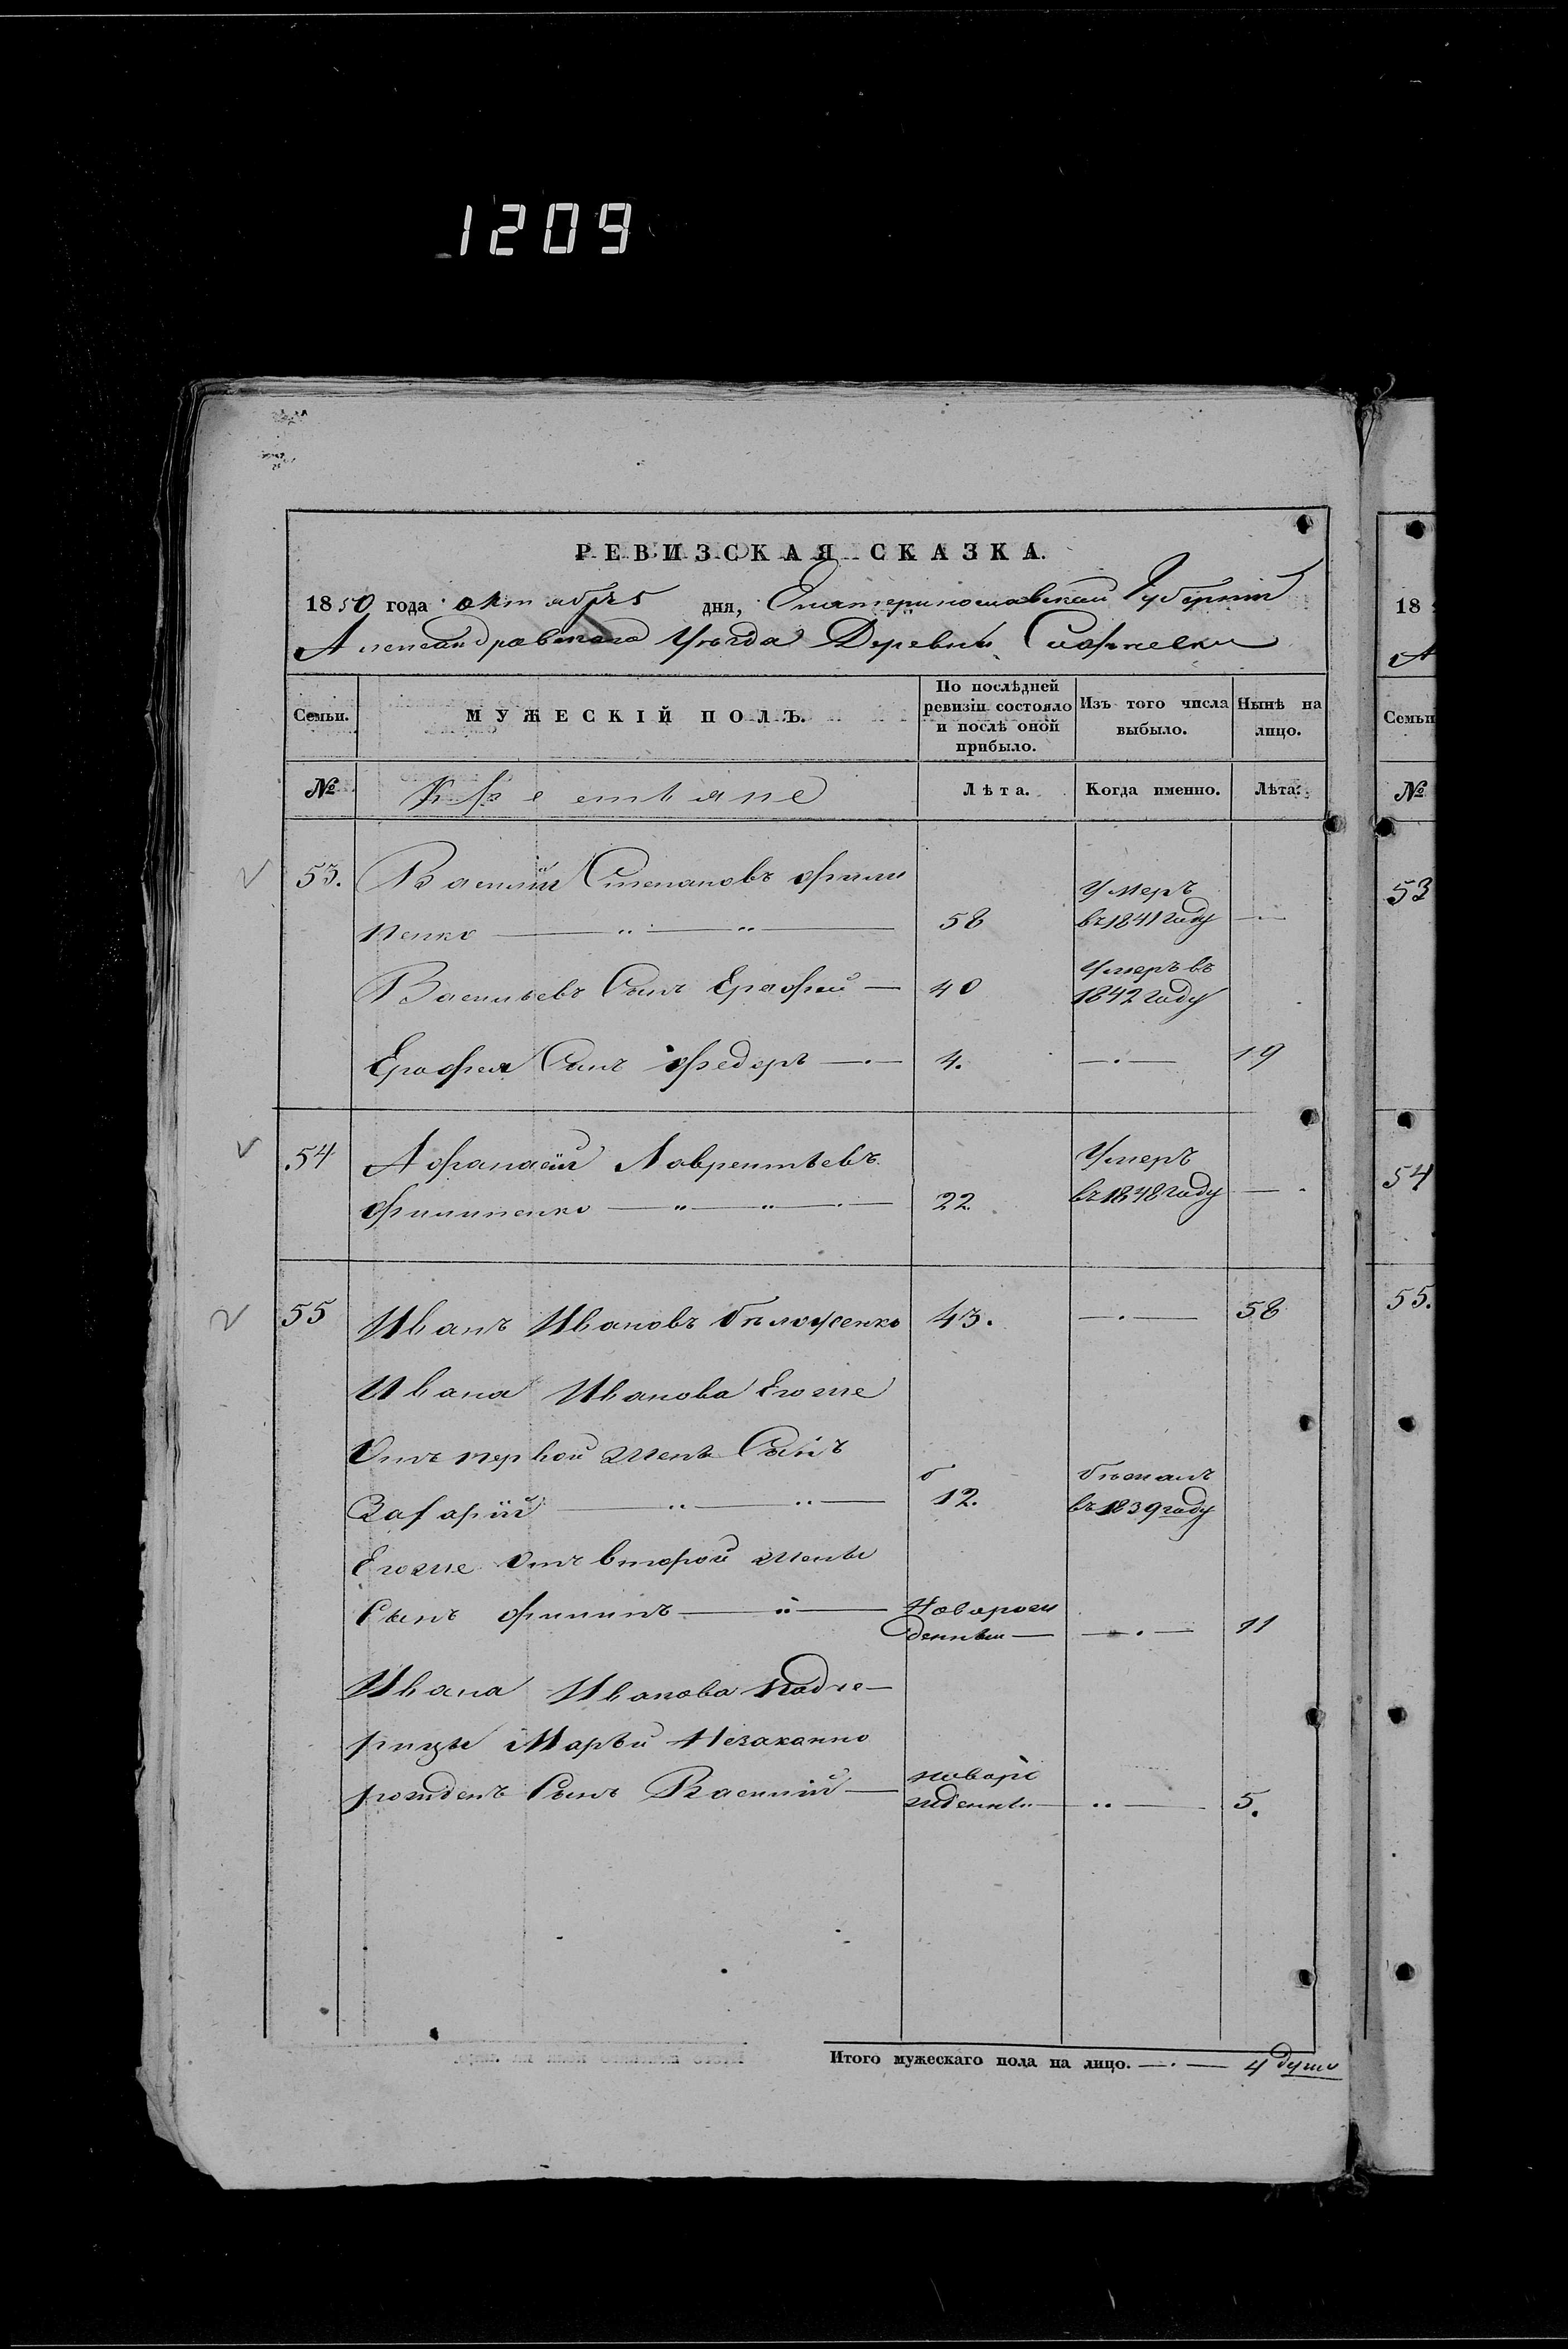 1209
РЕВИЗСКАЯ СКАЗКА.
1850 года октября 5 дня, Екатеринославской Губернии
Александровского Уѣзда Деревни Софиевки
Семьи.
МУЖЕСКІЙ ПОЛЪ.
По послѣдней ревизіи состояло и послѣ оной прибыло.
Изъ того числа выбыло.
Нынѣ на лицо.
№
Крестьяне
Лѣта.
Когда именно.
Лѣта.
53. Василій Степановъ Фили
пенко 58 Умеръ въ 1841 году
Васильевъ Сынъ Ерофей 40 Умеръ въ 1842 году
Ерофея Сынъ Федоръ 4. 19
54 Афанасій Лаврентьевъ
Филипенко 22 Умеръ въ 1848 году
55 Иванъ Ивановъ 43. 58
Ивана Иванова Егоже
Отъ первой жены Сынъ
Захарій 12. бѣжалъ въ 1839 году
Егоже Отъ второй жены
Сынъ Филипъ Новорож
денный 11
Ивана Иванова Падче-
рицы Марьи Незаконно
рожденъ Сынъ Василій новоро
жденны 5.
Итого мужескаго пола на лицо. 4 души
18
А
Семьи
№
53
54
55.